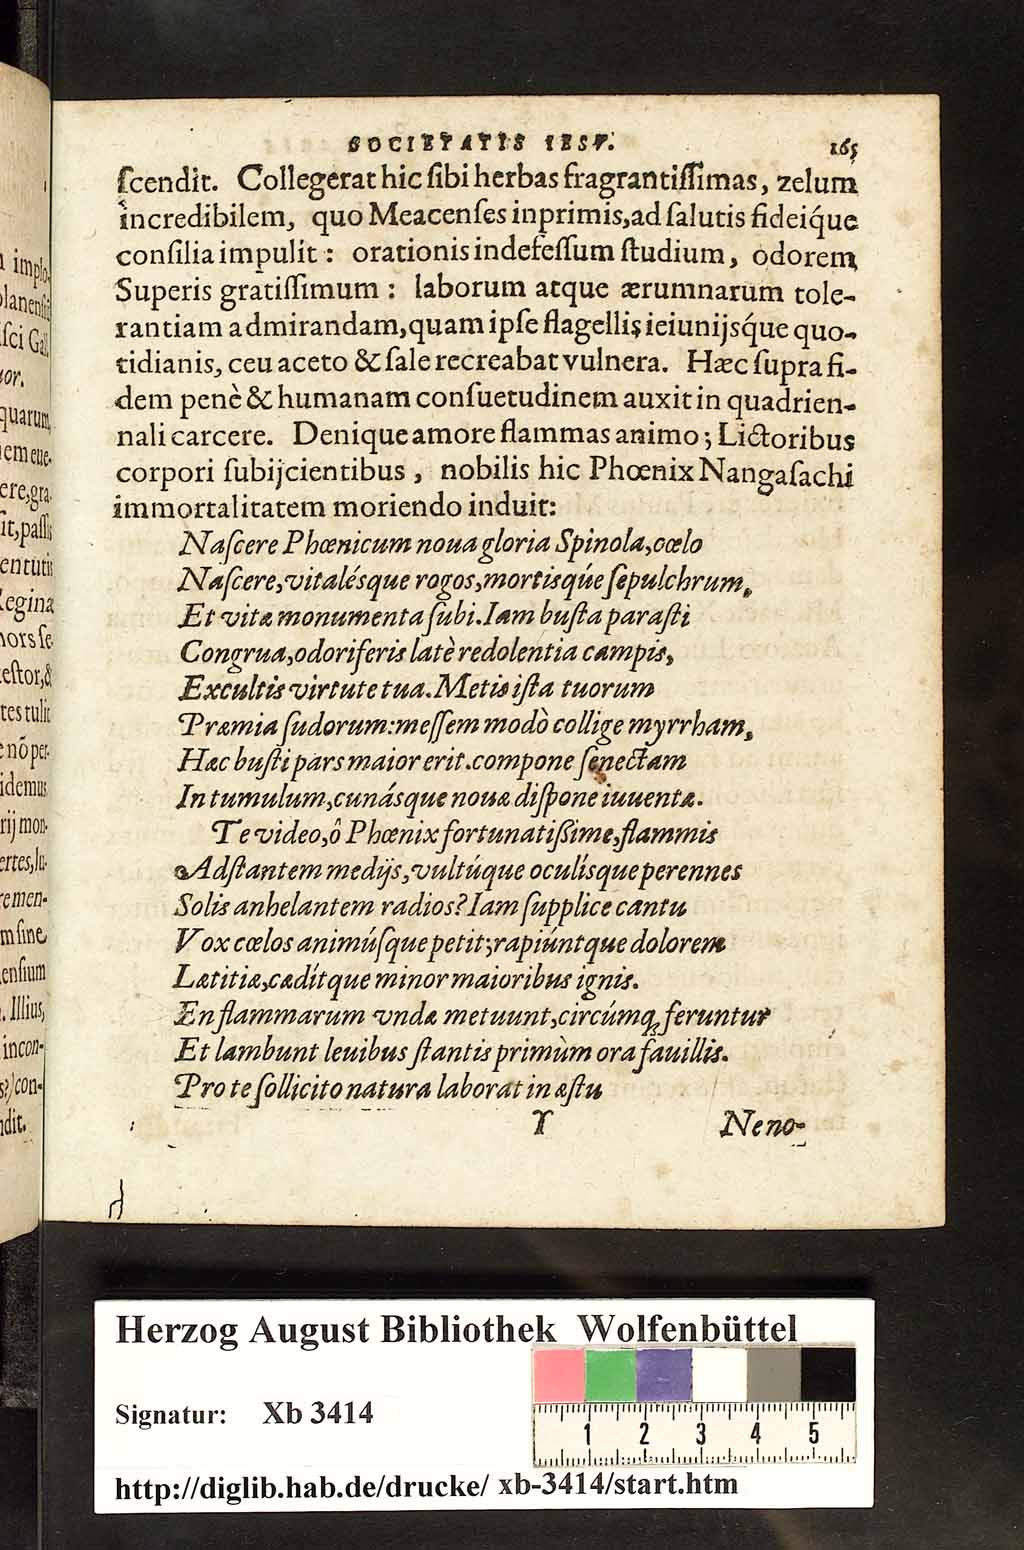 SOCIETATIS IESV. 165
ſcendit. Collegerat hic ſibi herbas fragrantiſſimas, zelum
incredibilem, quo Meacenſes inprimis, ad ſalutis fideíque
conſilia impulit: orationis indefeſſum ſtudium, odorem
Superis gratiſſimum: laborum atque ærumnarum tole-
rantiam admirandam, quam ipſe flagellis ieiunijsq́ue quo-
tidianis, ceu aceto & ſale recreabat vulnera. Hæc ſupra fi-
dem penè & humanam conſuetudinem auxit in quadrien-
nali carcere. Denique amore flammas animo; Lictoribus
corpori ſubijcientibus, nobilis hic Phœnix Nangaſachi
immortalitatem moriendo induit:
Naſcere Phœnicum noua gloria Spinola, cœlo
Naſcere, vitalésque rogos, mortisq́ue ſepulchrum,
Et vitæ monumenta ſubi. Iam buſta paraſti
Congrua, odoriferis latè redolentia campis,
Excultis virtute tua. Metis iſta tuorum
Præmia ſudorum: meſſem modò collige myrrham,
Hæc buſti pars maior erit. compone ſenectam
In tumulum, cunásque nouæ diſpone iuuentæ.
Te video, ô Phœnix fortunatißime, flammis
Adſtantem medijs, vultúque oculísque perennes
Solis anhelantem radios? Iam ſupplice cantu
Vox cœlos animúſque petit; rapiúntque dolorem
Lætitiæ, cædítque minor maioribus ignis.
En flammarum vndæ metuunt, circúmq; feruntur
Et lambunt leuibus ſtantis primùm ora fauillis.
Pro te ſollicito natura laborat in æſtu
Y Neno-
m implo-
planenſis
ſci Gal.
uor.
quarum,
em eue-
ere, gra-
it, paſſis
entutis
Regina
nors ſe-
eſtor, &
tes tulit
e nõ per-
idemus
rij mon-
ertes, lu-
re men-
m ſine
enſium
. Illius,
incon-
s?) con-
dit.
Herzog August Bibliothek Wolfenbüttel
Signatur: Xb 3414
1 2 3 4 5
http://diglib.hab.de/drucke/ xb-3414/start.htm